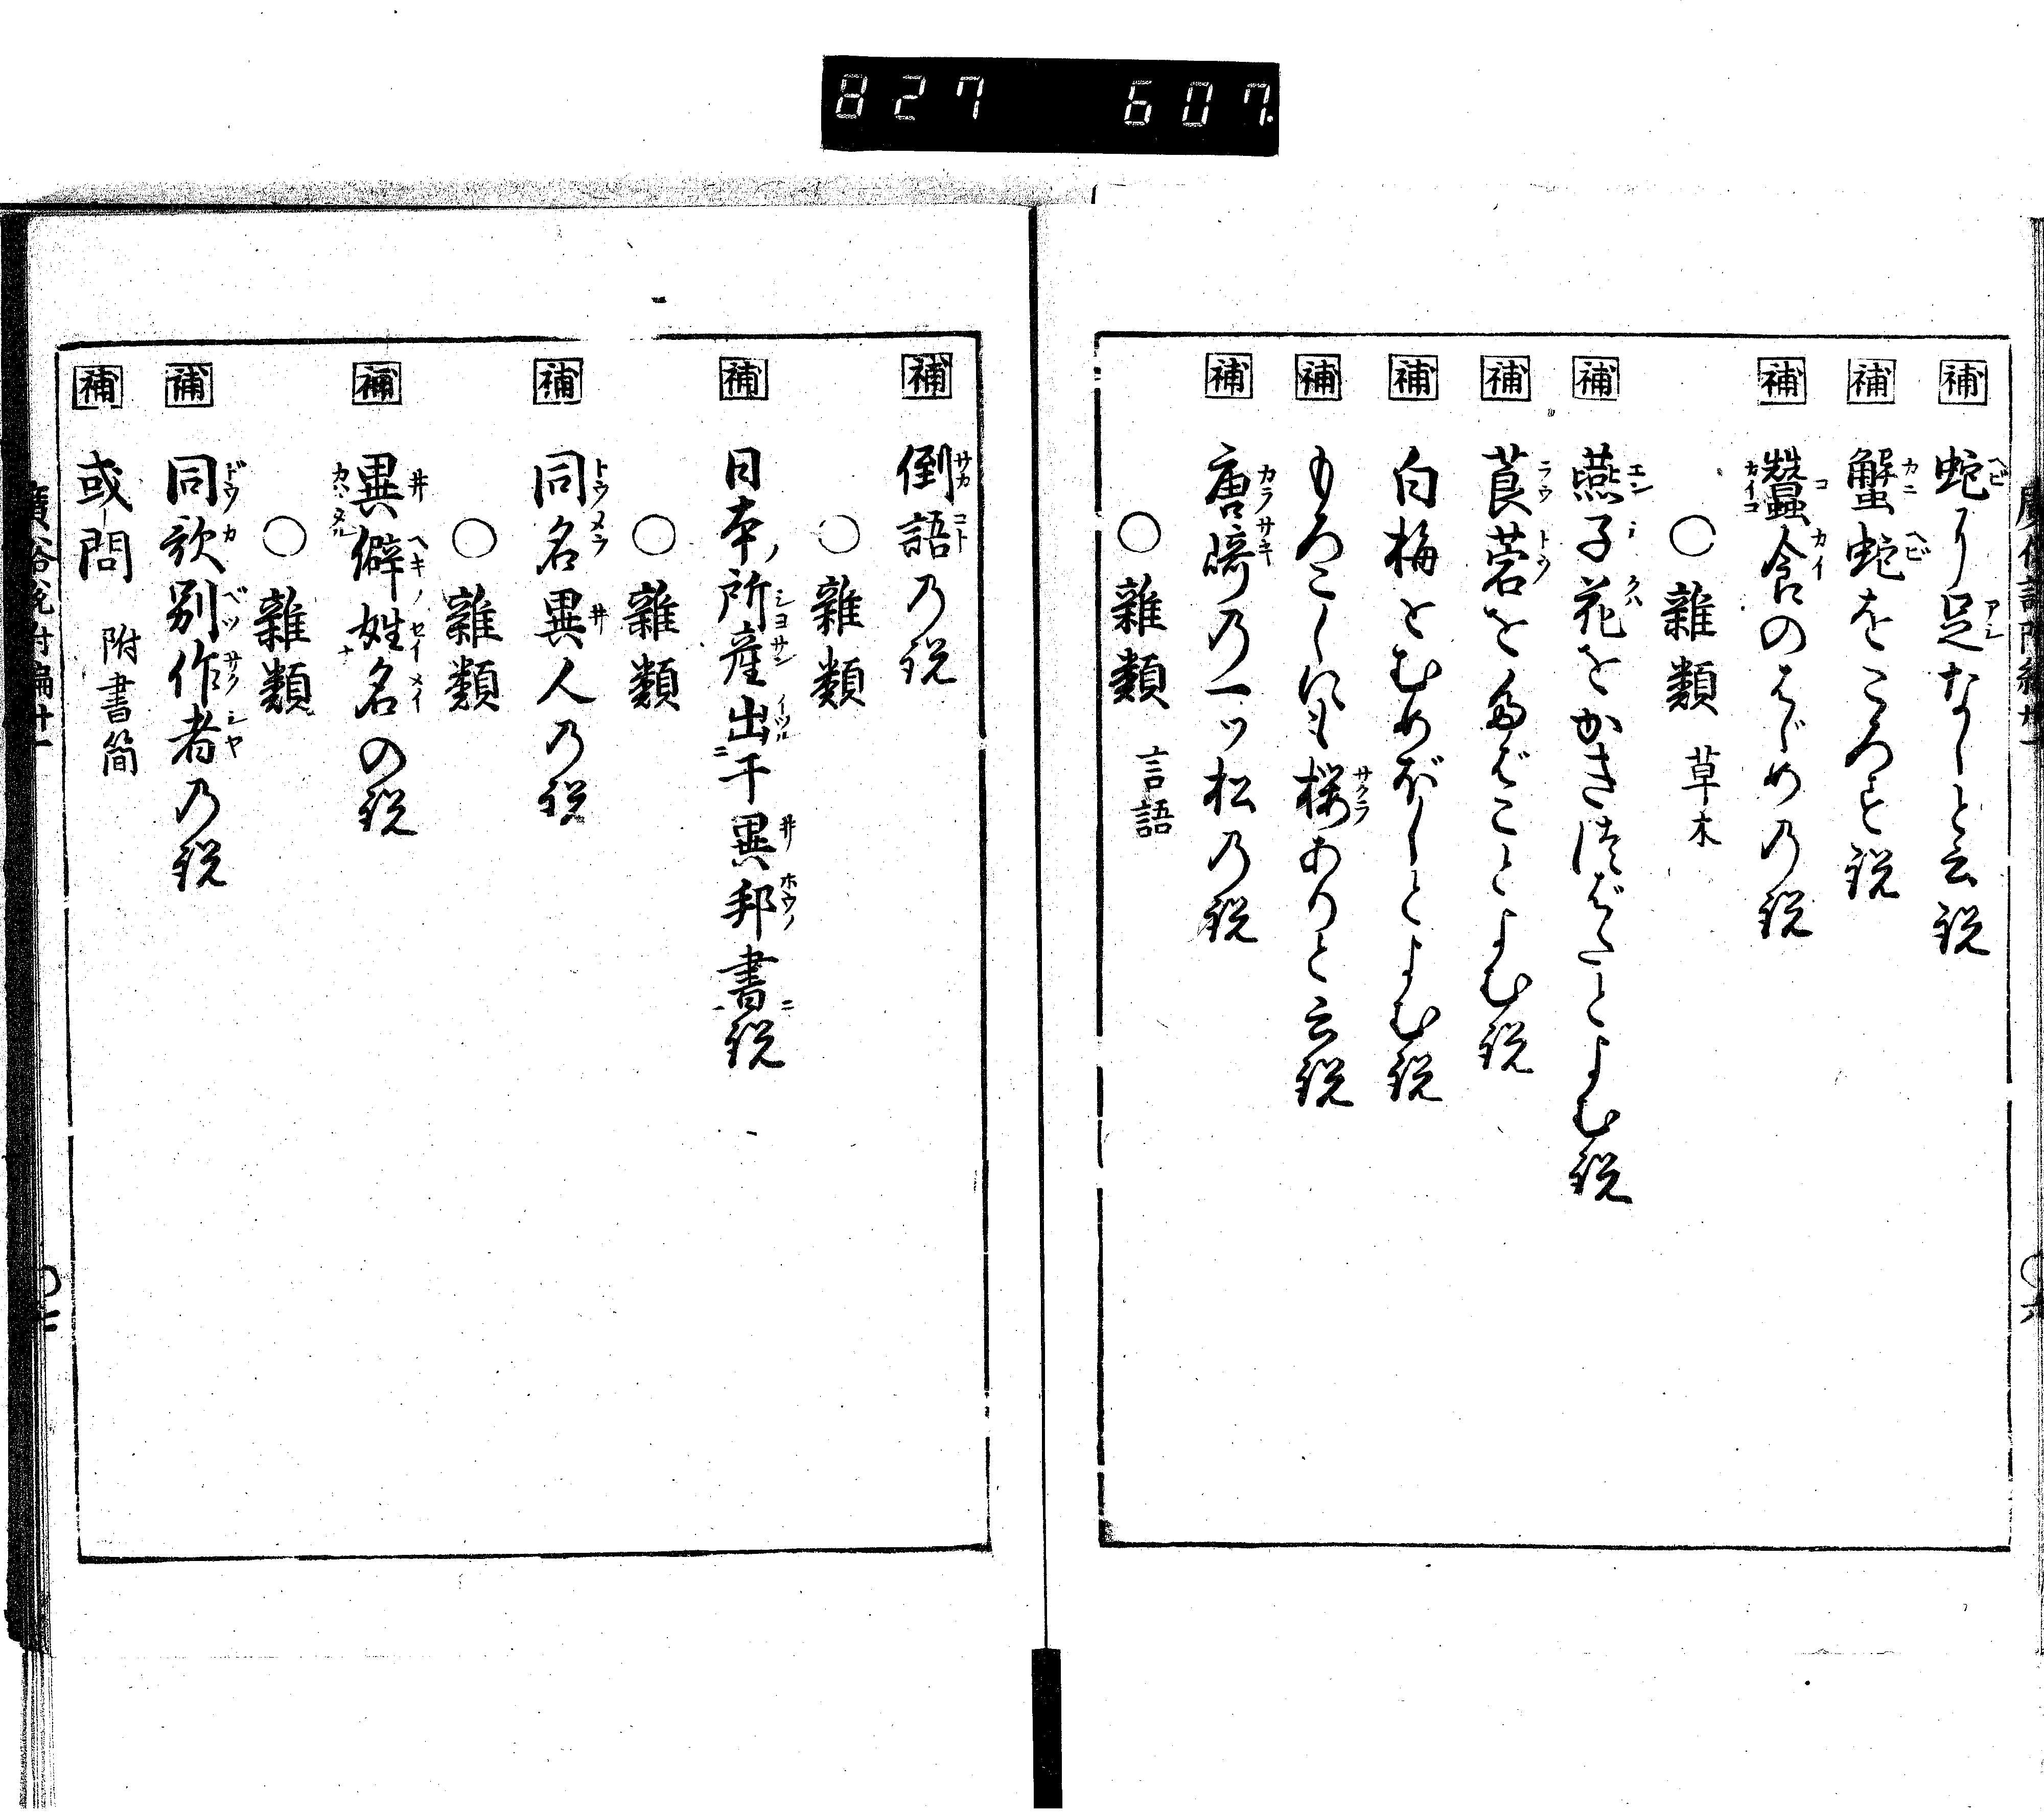 827 607.
補 蛇に足なしと云説
補 蟹蛇をころす説
補 蠶食のはじめの説
○雜類 草木
補 燕子花をかきつばたとよむ説
補 莨菪をたばことよむ説
補 白梅をむめぼしとよむ説
補 もろこしにも桜ありと云説
補 唐﨑の一ッ松の説
○雜類 言語
補 倒語の説
○雜類
補 日本ノ所産出于異邦書説
○雜類
補 同名異人の説
○雜類
補 異僻姓名の説
○雜類
補 同歌別作者の説
補 或問 附書簡
廣俗説附編廿一